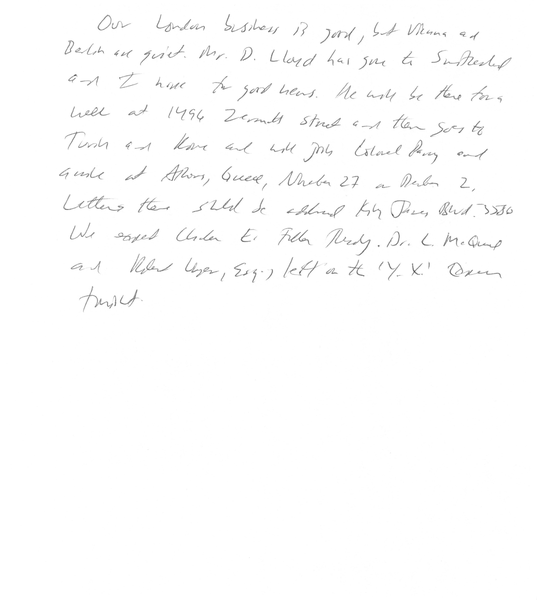 Our London business is good, but Vienna and
Berlin are quiet. Mr. D. Lloyd has gone to Switzerland
and I hope for good news. He will be there for a
week at 1496 Zermott street and then goes to
Turin and Rome and will join Colonel Parry and
arrive at Athens, Greece, November 27 or December 2.
Letters there should be addressed King James Blvd. 3580
We expect Charles E. Fuller Tuesday. Dr. L. McQuaid
and Robert Unger, Esq., left on the 'Y. X.' Express
tonight.